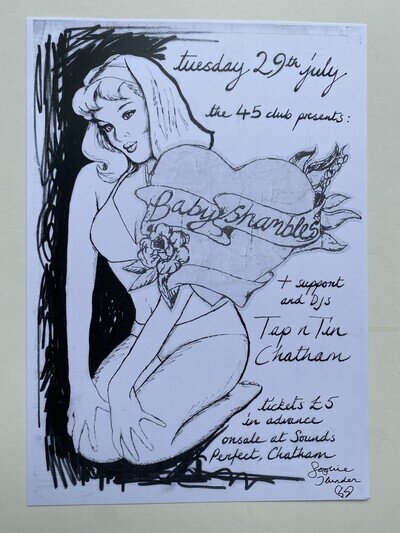 tuesday 29th july
the 45 club presents:
Babyshambles
+ support
and DJs
Tap n Tin
Chatham
tickets £5
in advance
onsale at Sounds
Perfect, Chatham